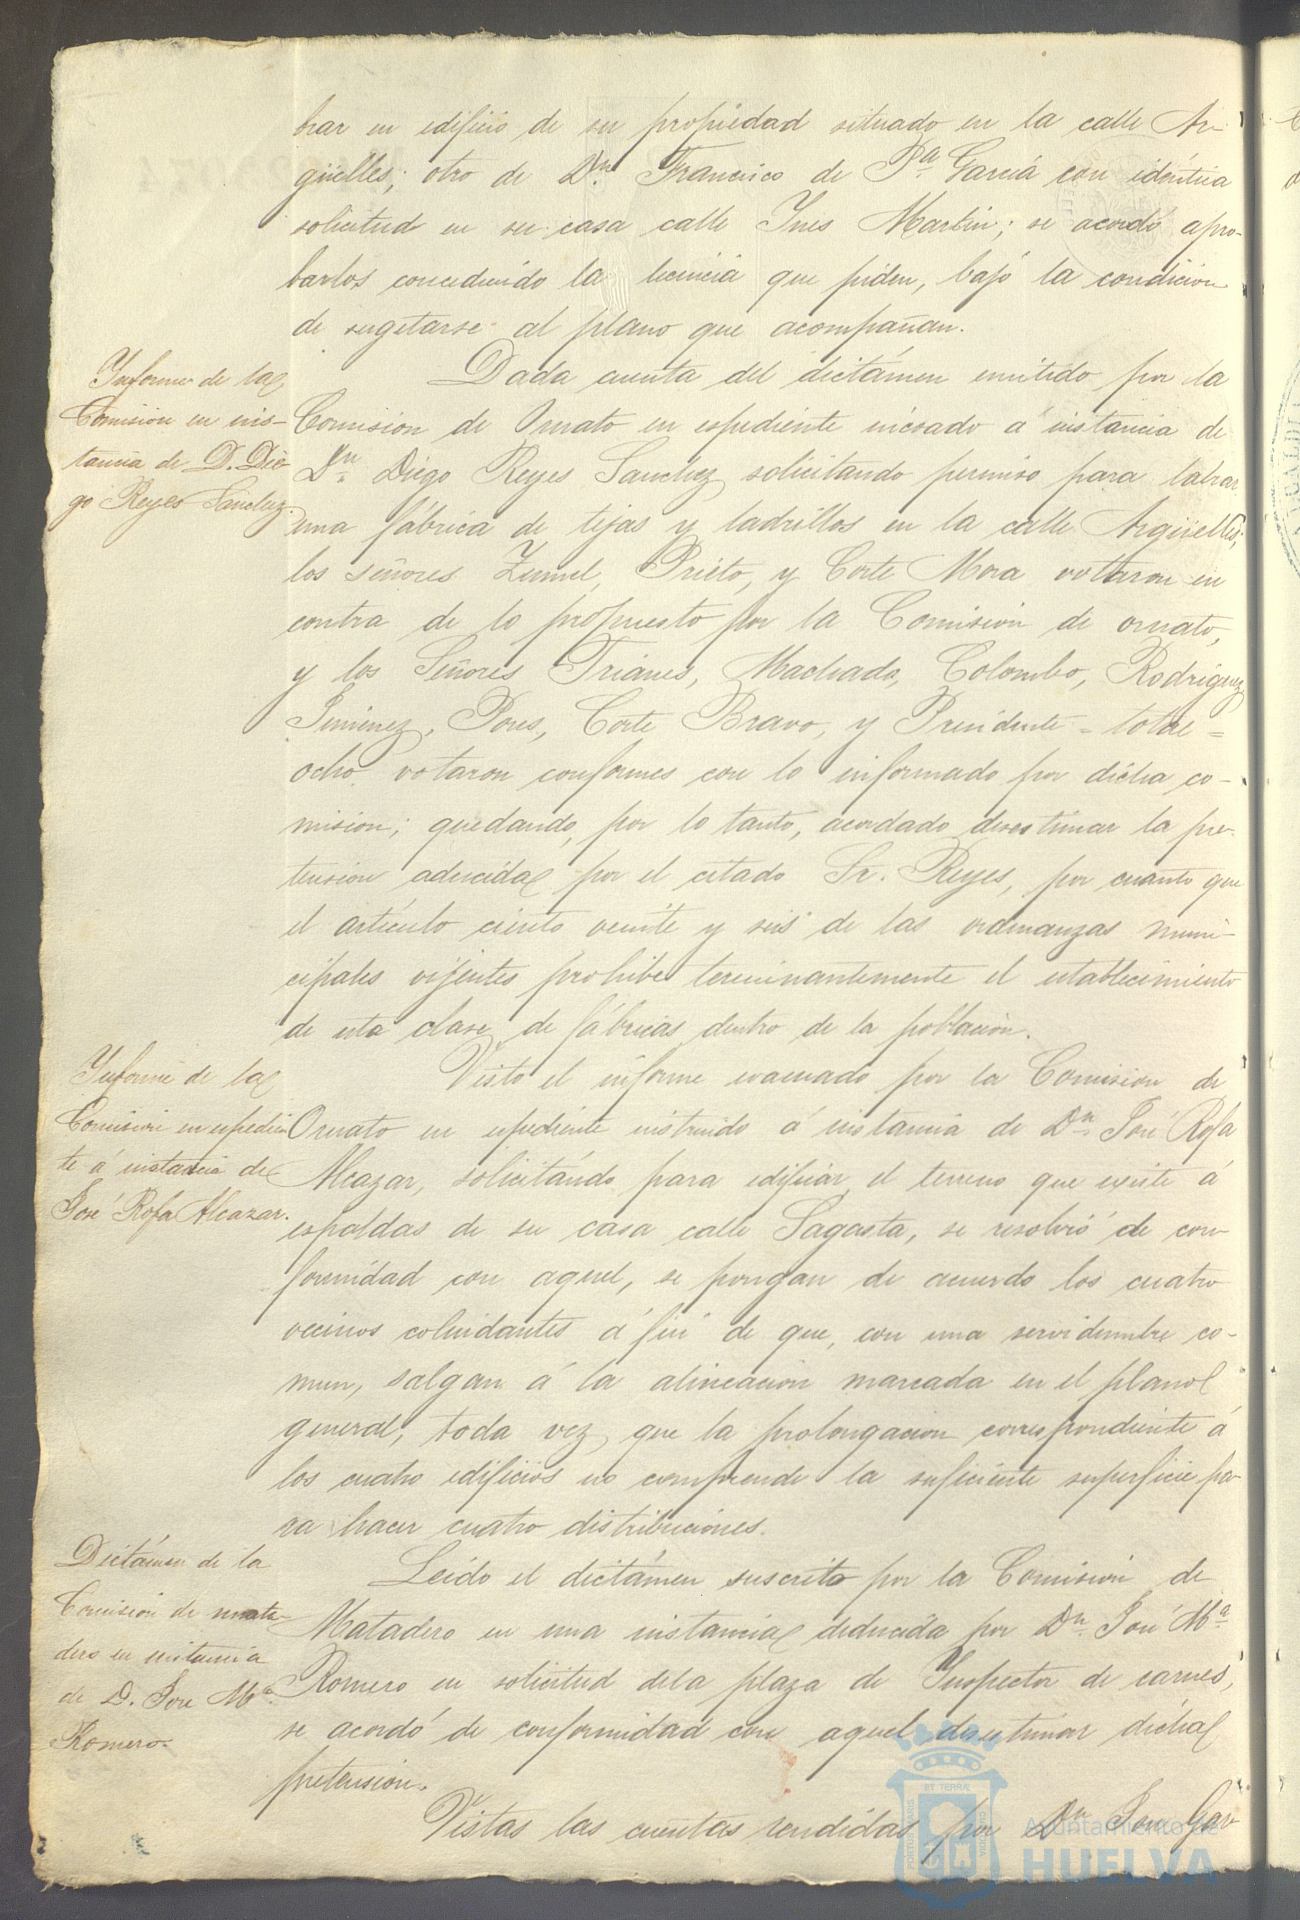 brar en edificio de su propiedad situado en la calle Ar-
güelles; otro de Dn. Francisco de Pa. García con idéntica
solicitud en su casa calle Ines Martin; se acordó apro-
barlos concediendo la licencia que piden, bajo la condicion
de sugetarse al plano que acompañan.
Informe de la
Comision en ins-
tancia de D. Die-
go Reyes Sanchez.
Dada cuenta del dictámen emitido por la
Comision de Ornato en espediente incoado á instancia de
Dn. Diego Reyes Sanchez solicitando permiso para labrar
una fábrica de tejas y ladrillos en la calle Argüelles,
los señores Zumel, Prieto, y Corte Mora votaron en
contra de lo propuesto por la Comision de ornato,
y los Señores Trianes, Machado, Colombo, Rodriguez
Jimenez, Pores, Corte Bravo, y Presidente = total =
ocho votaron conformes con lo informado por dicha co-
mision; quedando, por lo tanto, acordado desestimar la pre-
tension aducida por el citado Sr. Reyes, por cuanto que
el artículo ciento veinte y seis de las ordenanzas muni-
cipales vijentes prohibe terminantemente el establecimiento
de esta clase de fábricas dentro de la poblacion.
Informe de la
Comision en espedien-
te á instancia de
José Rofa Alcazar.
Visto el informe evacuado por la Comision de
Ornato en espediente instruido á instancia de Dn. José Rofa
Alcazar, solicitando para edificar el terreno que existe á
espaldas de su casa calle Sagasta, se resolvió de con-
formidad con aquel, se pongan de acuerdo los cuatro
vecinos colindantes á fin de que, con una servidumbre co-
mun, salgan á la alineacion marcada en el plano
general, toda vez que la prolongacion correspondiente á
los cuatro edificios no comprende la suficiente superficie pa-
ra hacer cuatro distribuciones.
Dictámen de la
Comision de mata-
dero en instancia
de D. José Ma.
Romero.
Leido el dictámen suscrito por la Comision de
Matadero en una instancia deducida por Dn. José Ma.
Romero en solicitud de la plaza de Inspector de carnes,
se acordó de conformidad con aquel desestimar dicha
pretension.
Vistas las cuentas rendidas por Dn. José Gar-
Ayuntamiento de
HUELVA